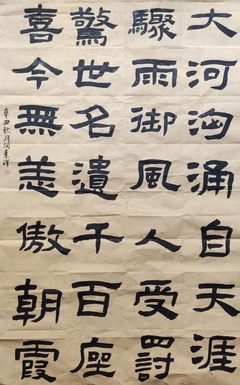 大河洶涌自天涯
驟雨御風人受罸
驚世名遺千百座
喜今無恙傲朝霞
辛丑秋月